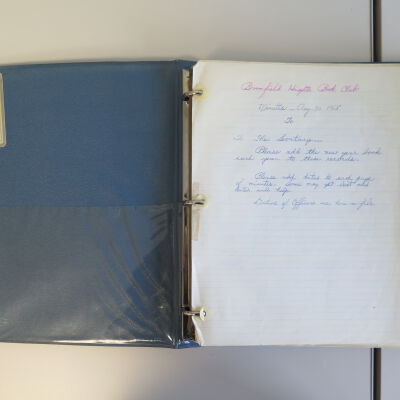 Bloomfield Heights Book Club
Minutes - Aug 30 1968
To
To The Secretary
Please add the new year book
each year to these records.
Please add dates to each page
of minutes. Some may get lost and
dates will help.
Duties of Officers are now in file